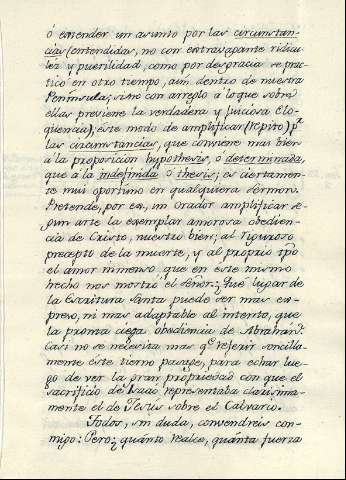 ó extender un asunto por las circunstan-
cias (entendidas, no con extravagante ridicu-
lez y puerilidad, como por desgracia se prac-
ticó en otro tiempo, aun dentro de nuestra
Peninsula; sino con arreglo a lo que sobre
ellas previene la verdadera y juiciosa Elo-
qüencia); este modo de amplificar (repito) pr.
las circunstancias, que conviene mas bien
á la proposición hypothesis, o determinada,
que á la indefinida o thesis; es ciertamen-
te mui oportuno en qualquiera Sermon.
Pretende, por ex, un orador amplificar se-
gun arte la exemplar amorosa obedien-
cia de Cristo, nuestro bien; al riguroso
precepto de la muerte, y al proprio tpõ
el amor inmenso, que en este mismo
hecho nos mostró el Señor: ¿Qué lugar de
la Escritura Santa puede ser mas ex-
preso, ni mas adaptable al intento, que
la pronta ciega obediencia de Abrahan?
Casi no se necesita mas qe referir sencilla-
mente este tierno pasage, para echar lue-
go de ver la gran propriedad con que el
sacrificio de Isaac representaba clarisima-
mente el de Jesús sobre el Calvario.
Todos, sin duda, convendréis con-
migo: Pero ¿quánto realce, quánta fuerza